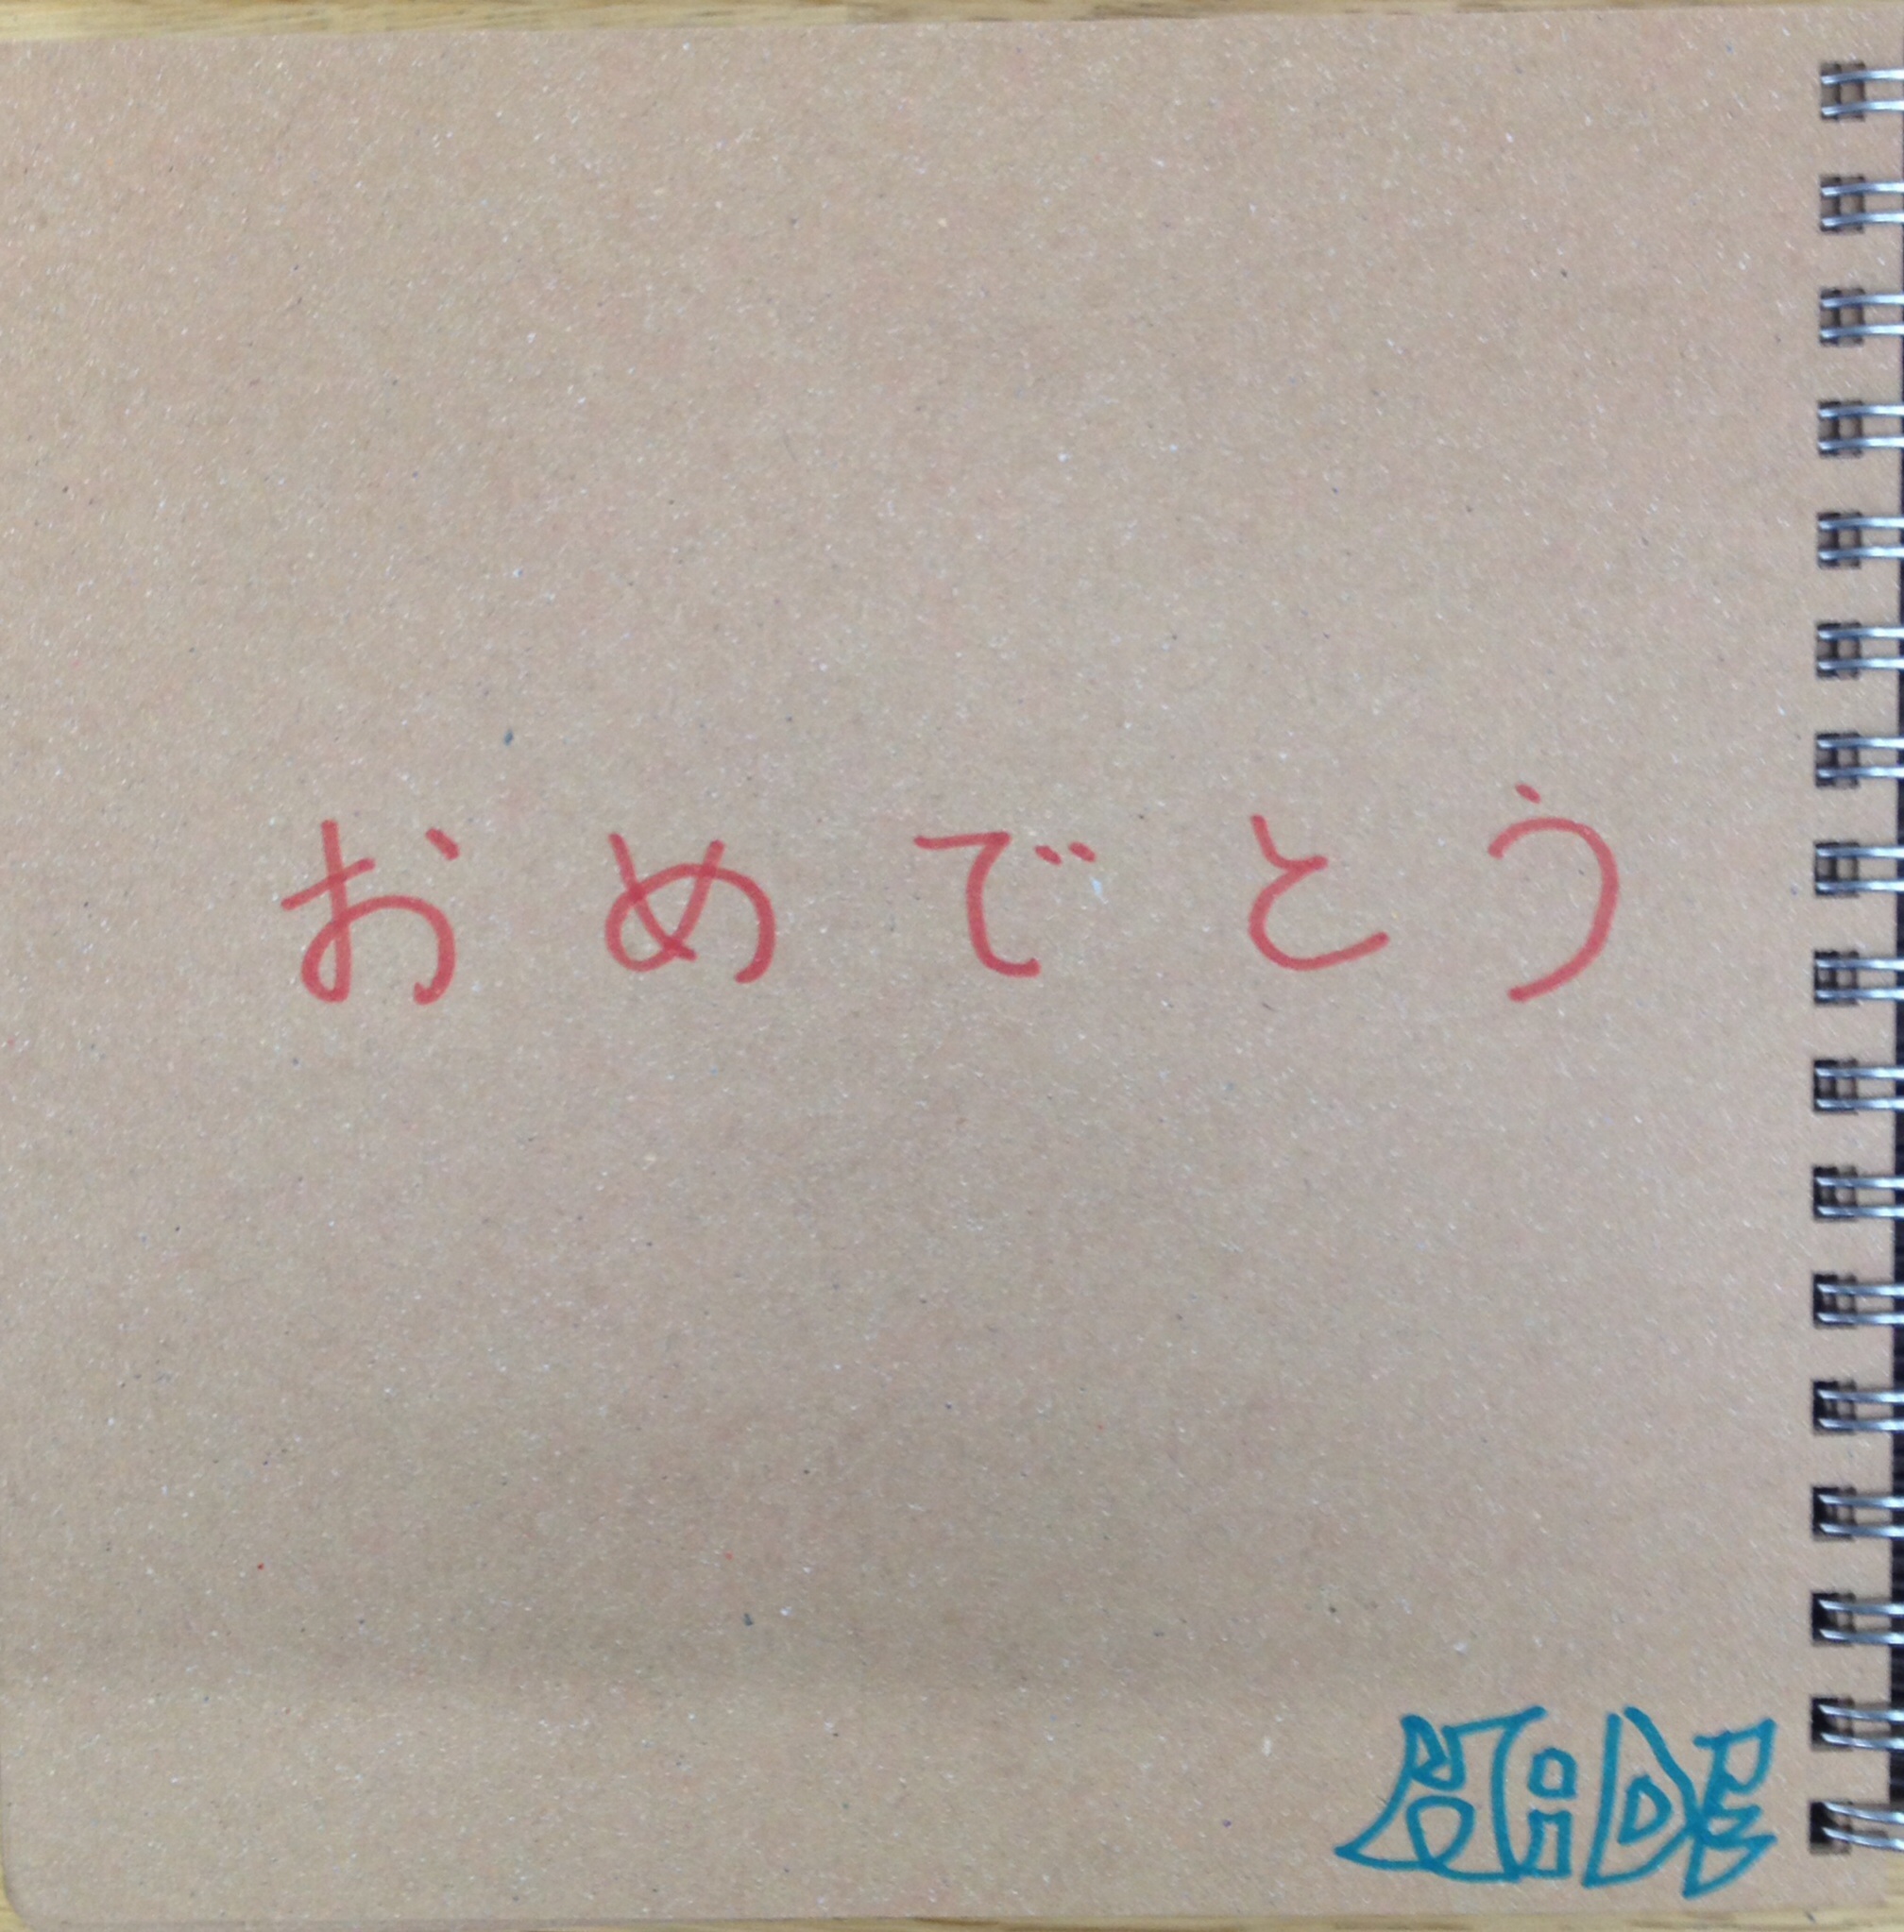 おめでとう
HiDE